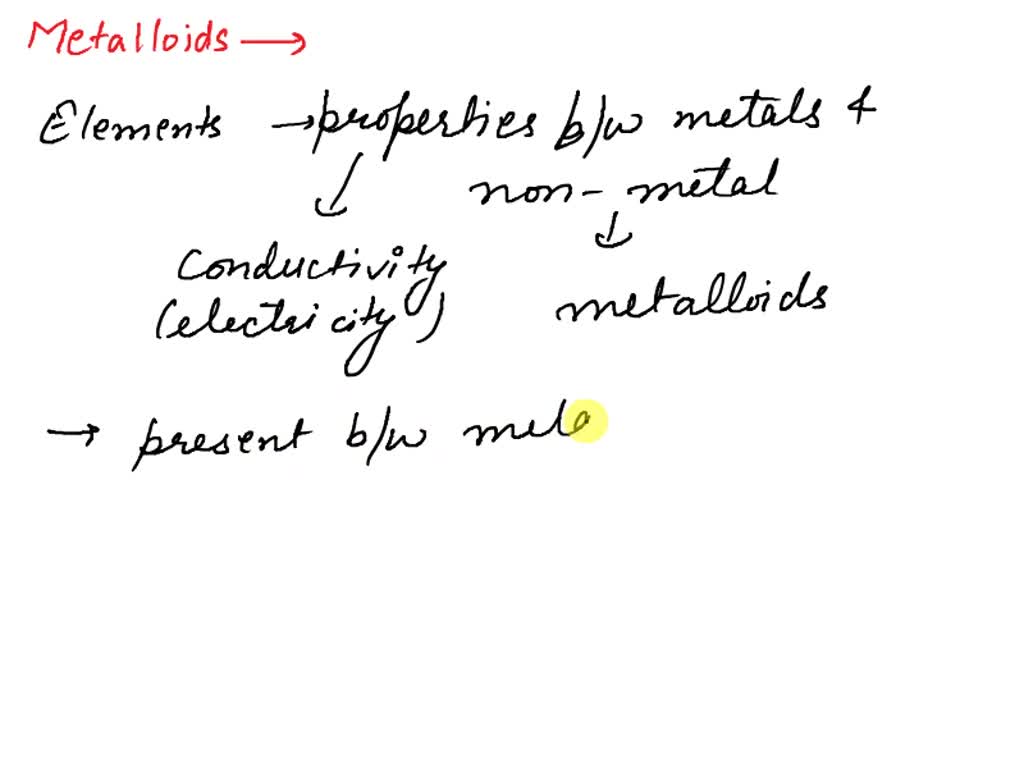 Metalloids →
Elements → properties b/w metals &
non-metal
conductivity
(electricity)
metalloids
→ present b/w meta